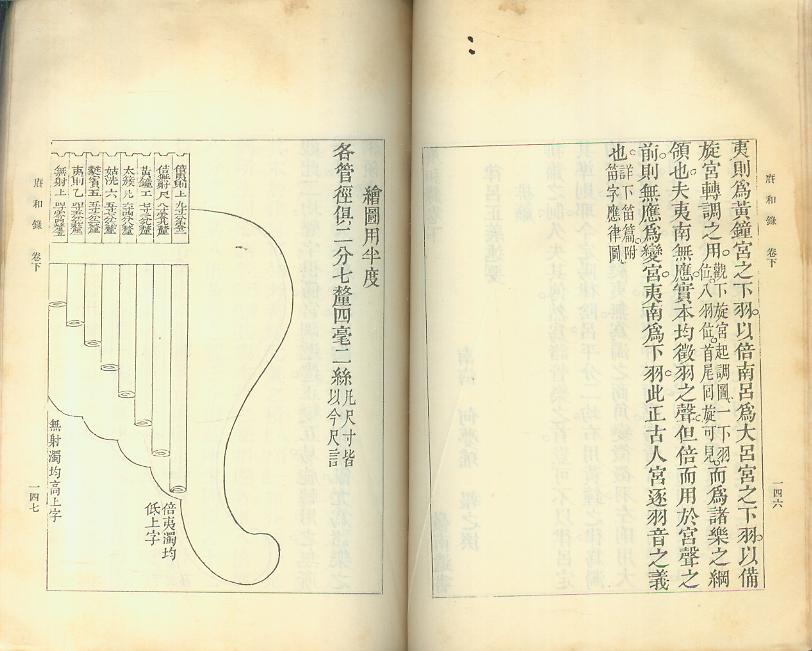 夷則爲黃鐘宮之下羽。以倍南呂爲大呂宮之下羽。以備
旋宮轉調之用。觀下旋宮起調圖。一下羽
位。八羽位。首尾回旋可見。而爲諸樂之綱
領也。夫夷南無應。實本均徵羽之聲。但倍而用於宮聲之
前。則無應爲變宮。夷南爲下羽。此正古人宮逐羽音之義
也。詳下笛篇附
笛字應律圖
府和錄 卷下
一四六
繪圖用半度
各管徑俱二分七釐四毫二絲凡尺寸皆
以今尺計
倍夷則上
倍無射尺
黃鐘工
太簇凡
姑洗六
蕤賓五
夷則乙
無射上
倍夷濁均
低上字
無射濁均高上字
府和錄 卷下
一四七